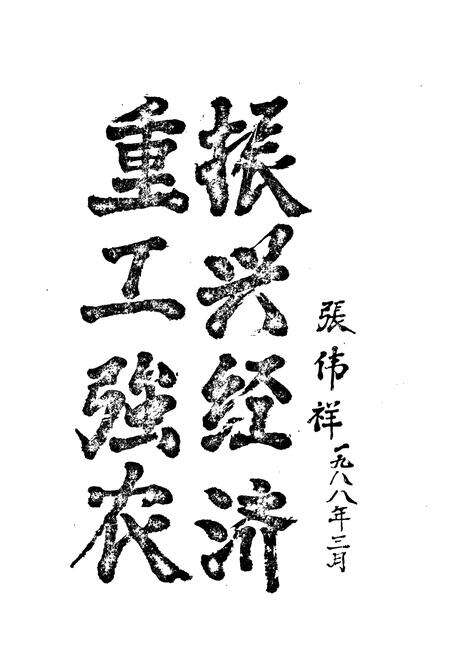 振兴经济
重工強农
張伟祥
一九八八年三月